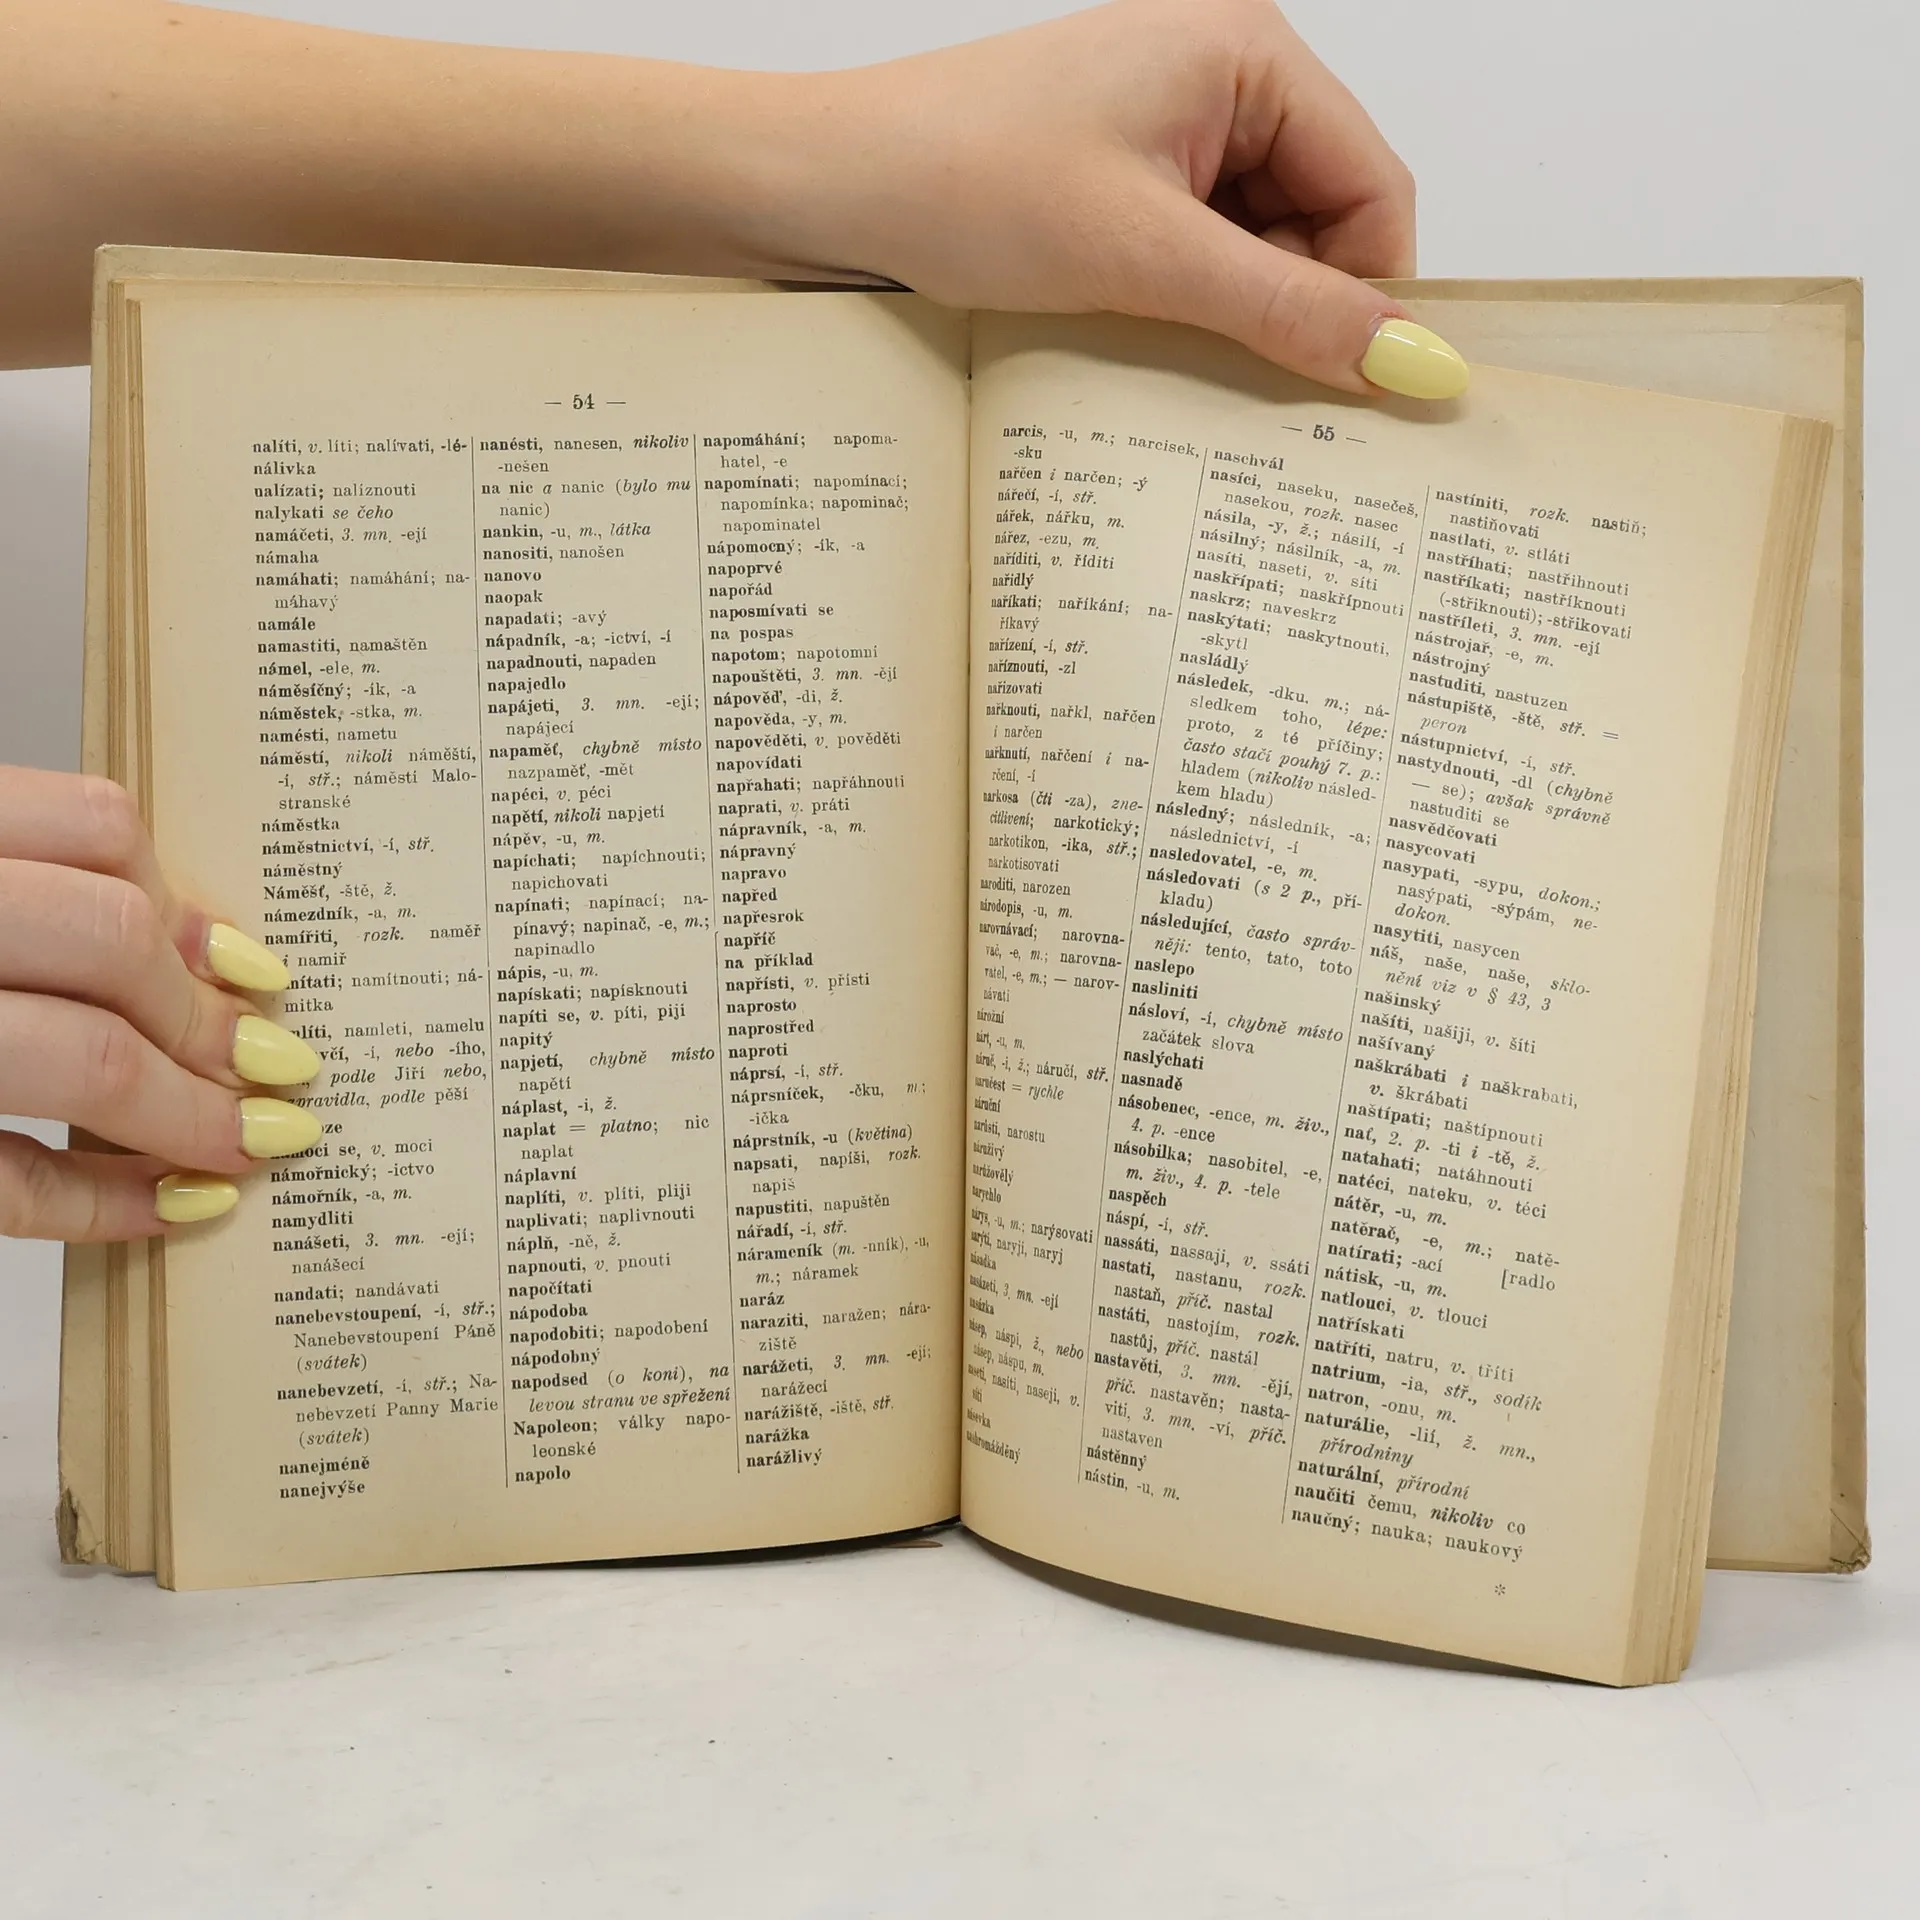 — 54 —
nalíti, v. líti; nalívati, -lé-
nálivka
nalízati; nalíznouti
nalykati se čeho
namáčeti, 3. mn. -ejí
námaha
namáhati; namáhání; na-
máhavý
namále
namastiti, namaštěn
námel, -ele, m.
náměsíčný; -ík, -a
náměstek, -stka, m.
namésti, nametu
náměstí, nikoli náměští,
-í, stř.; náměstí Malo-
stranské
náměstka
náměstnictví, -í, stř.
náměstný
Náměšť, -ště, ž.
námezdník, -a, m.
namířiti, rozk. naměř
i namiř
namítnouti; ná-
mitka
namleti, namelu
-í, nebo -ího,
podle Jiří nebo,
podle pěší
se, v. moci
námořnický; -ictvo
námořník, -a, m.
namydliti
nanášeti, 3. mn. -ejí;
nanášecí
nandati; nandávati
nanebevstoupení, -í, stř.;
Nanebevstoupení Páně
(svátek)
nanebevzetí, -í, stř.; Na-
nebevzetí Panny Marie
(svátek)
nanejméně
nanejvýše
nanésti, nanesen, nikoliv
-nešen
na nic a nanic (bylo mu
nanic)
nankin, -u, m., látka
nanositi, nanošen
nanovo
naopak
napadati; -avý
nápadník, -a; -ictví, -í
napadnouti, napaden
napajedlo
napájeti, 3. mn. -ejí;
napájecí
napaměť, chybně místo
nazpaměť, -mět
napéci, v. péci
napětí, nikoli napjetí
nápěv, -u, m.
napíchati; napíchnouti;
napichovati
napínati; napínací; na-
pínavý; napinač, -e, m.;
napinadlo
nápis, -u, m.
napískati; napísknouti
napíti se, v. píti, piji
napitý
napjetí, chybně místo
napětí
náplast, -i, ž.
naplat = platno; nic
naplat
náplavní
naplíti, v. plíti, pliji
naplivati; naplivnouti
náplň, -ně, ž.
napnouti, v. pnouti
napočítati
nápodoba
napodobiti; napodobení
nápodobný
napodsed (o koni), na
levou stranu ve spřežení
Napoleon; války napo-
leonské
napolo
napomáhání; napoma-
hatel, -e
napomínati; napomínací;
napomínka; napominač;
napominatel
nápomocný; -ík, -a
napoprvé
napořád
naposmívati se
na pospas
napotom; napotomní
napouštěti, 3. mn. -ějí
nápověď, -di, ž.
napověda, -y, m.
napověděti, v. pověděti
napovídati
napřahati; napřáhnouti
naprati, v. práti
nápravník, -a, m.
nápravný
napravo
napřed
napřesrok
napříč
na příklad
napřísti, v. přísti
naprosto
naprostřed
naproti
náprsí, -í, stř.
náprsníček, -čku, m.;
-ička
náprstník, -u (květina)
napsati, napíši, rozk.
napiš
napustiti, napuštěn
nářadí, -í, stř.
nárameník (m. -nník), -u,
m.; náramek
naráz
naraziti, naražen; nára-
ziště
narážeti, 3. mn. -ejí;
narážecí
narážiště, -iště, stř.
narážka
narážlivý
— 55 —
narcis, -u, m.; narcisek,
-sku
nařčen i narčen; -ý
nářečí, -í, stř.
nářek, nářku, m.
nářez, -ezu, m.
naříditi, v. říditi
nařidlý
naříkati; naříkání; na-
říkavý
nařízení, -í, stř.
naříznouti, -zl
nařizovati
nařknouti, nařkl, nařčen
i narčen
nařknutí, nařčení i na-
rčení, -í
narkosa (čti -za), zne-
citlivení; narkotický;
narkotikon, -ika, stř.;
narkotisovati
naroditi, narozen
národopis, -u, m.
narovnávací; narovna-
vač, -e, m.; narovna-
vatel, -e, m.; — narov-
návati
nárožní
nárt, -u, m.
náruč, -i, ž.; náručí, stř.
naručest = rychle
náruční
narůsti, narostu
náruživý
narůžovělý
narychlo
nárys, -u, m.; narýsovati
narýti, naryji, naryj
násadka
nasázeti, 3. mn. -ejí
nasázka
násep, náspi, ž., nebo
násep, náspu, m.
naseti, nasíti, naseji, v.
síti
násevka
nashromážděný
naschvál
nasíci, naseku, nasečeš,
nasekou, rozk. nasec
násila, -y, ž.; násilí, -í
násilný; násilník, -a, m.
nasíti, naseti, v. síti
naskřípati; naskřípnouti
naskrz; naveskrz
naskýtati; naskytnouti,
-skytl
nasládlý
následek, -dku, m.; ná-
sledkem toho, lépe:
proto, z té příčiny;
často stačí pouhý 7. p.:
hladem (nikoliv násled-
kem hladu)
následný; následník, -a;
následnictví, -í
nasledovatel, -e, m.
následovati (s 2 p., pří-
kladu)
následující, často správ-
něji: tento, tato, toto
naslepo
nasliniti
násloví, -í, chybně místo
začátek slova
naslýchati
nasnadě
násobenec, -ence, m. živ.,
4. p. -ence
násobilka; nasobitel, -e,
m. živ., 4. p. -tele
naspěch
náspí, -í, stř.
nassáti, nassaji, v. ssáti
nastati, nastanu, rozk.
nastaň, příč. nastal
nastáti, nastojím, rozk.
nastůj, příč. nastál
nastavěti, 3. mn. -ějí,
příč. nastavěn; nasta-
viti, 3. mn. -ví, příč.
nastaven
nástěnný
nástin, -u, m.
nastíniti, rozk. nastiň;
nastiňovati
nastlati, v. stláti
nastříhati; nastřihnouti
nastříkati; nastříknouti
(-střiknouti); -střikovati
nastříleti, 3. mn. -ejí
nástrojař, -e, m.
nástrojný
nastuditi, nastuzen
nástupiště, -ště, stř. =
peron
nástupnictví, -í, stř.
nastydnouti, -dl (chybně
— se); avšak správně
nastuditi se
nasvědčovati
nasycovati
nasypati, -sypu, dokon.;
nasýpati, -sýpám, ne-
dokon.
nasytiti, nasycen
náš, naše, naše, sklo-
nění viz v § 43, 3
našinský
našíti, našiji, v. šíti
našívaný
naškrábati i naškrabati,
v. škrábati
naštípati; naštípnouti
nať, 2. p. -ti i -tě, ž.
natahati; natáhnouti
natéci, nateku, v. téci
nátěr, -u, m.
natěrač, -e, m.; natě-
natírati; -ací [radlo
nátisk, -u, m.
natlouci, v. tlouci
natřískati
natříti, natru, v. tříti
natrium, -ia, stř., sodík
natron, -onu, m.
naturálie, -lií, ž. mn.,
přírodniny
naturální, přírodní
naučiti čemu, nikoliv co
naučný; nauka; naukový
*